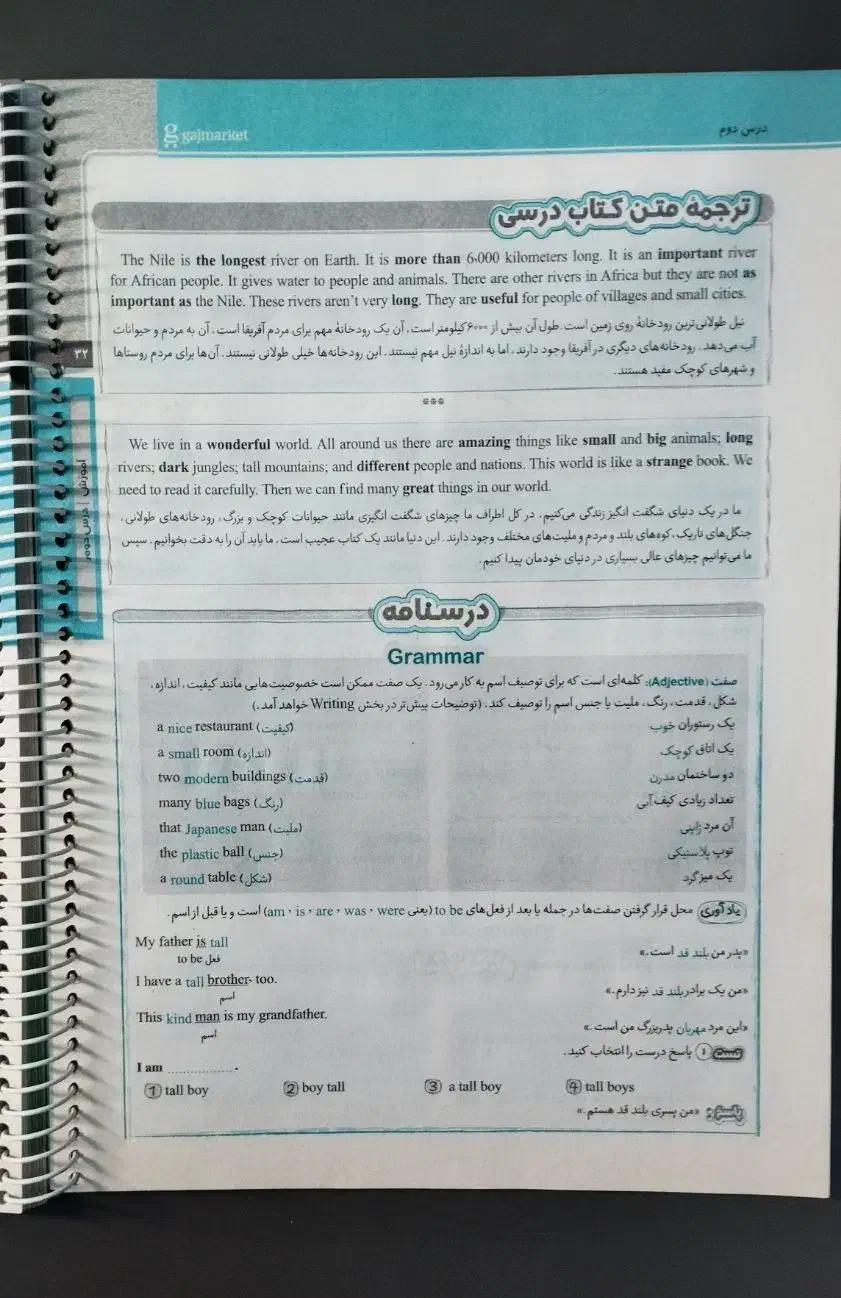 gajmarket
درس دوم
ترجمهٔ متن کتاب درسی
The Nile is the longest river on Earth. It is more than 6,000 kilometers long. It is an important river
for African people. It gives water to people and animals. There are other rivers in Africa but they are not as
important as the Nile. These rivers aren't very long. They are useful for people of villages and small cities.
نیل طولانی‌ترین رودخانهٔ روی زمین است. طول آن بیش از ۶۰۰۰ کیلومتر است. آن یک رودخانهٔ مهم برای مردم آفریقا است. آن به مردم و حیوانات
آب می‌دهد. رودخانه‌های دیگری در آفریقا وجود دارند، اما به اندازهٔ نیل مهم نیستند. این رودخانه‌ها خیلی طولانی نیستند. آن‌ها برای مردم روستاها
و شهرهای کوچک مفید هستند.
۳۲
آموزش | درس دوم
***
We live in a wonderful world. All around us there are amazing things like small and big animals; long
rivers; dark jungles; tall mountains; and different people and nations. This world is like a strange book. We
need to read it carefully. Then we can find many great things in our world.
ما در یک دنیای شگفت انگیز زندگی می‌کنیم. در کل اطراف ما چیزهای شگفت انگیزی مانند حیوانات کوچک و بزرگ، رودخانه‌های طولانی،
جنگل‌های تاریک، کوه‌های بلند و مردم و ملیت‌های مختلف وجود دارند. این دنیا مانند یک کتاب عجیب است. ما باید آن را به دقت بخوانیم. سپس
ما می‌توانیم چیزهای عالی بسیاری در دنیای خودمان پیدا کنیم.
درسنامه
Grammar
صفت (Adjective): کلمه‌ای است که برای توصیف اسم به کار می‌رود. یک صفت ممکن است خصوصیت‌هایی مانند کیفیت، اندازه،
شکل، قدمت، رنگ، ملیت یا جنس اسم را توصیف کند. (توضیحات بیش‌تر در بخش Writing خواهد آمد.)
a nice restaurant (کیفیت) یک رستوران خوب
a small room (اندازه) یک اتاق کوچک
two modern buildings (قدمت) دو ساختمان مدرن
many blue bags (رنگ) تعداد زیادی کیف آبی
that Japanese man (ملیت) آن مرد ژاپنی
the plastic ball (جنس) توپ پلاستیکی
a round table (شکل) یک میز گرد
یادآوری محل قرار گرفتن صفت‌ها در جمله یا بعد از فعل‌های to be (یعنی am، is، are، was، were) است و یا قبل از اسم.
My father is tall
فعل to be
«پدر من بلند قد است.»
I have a tall brother, too.
اسم
«من یک برادر بلند قد نیز دارم.»
This kind man is my grandfather.
اسم
«این مرد مهربان پدربزرگ من است.»
تست ۱ پاسخ درست را انتخاب کنید.
I am ................ .
1 tall boy 2 boy tall 3 a tall boy 4 tall boys
پاسخ: «من پسری بلند قد هستم.»